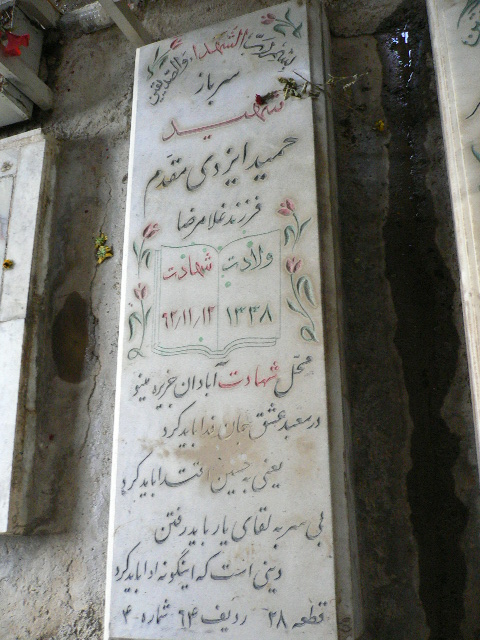 بسم رب الشهداء والصدیقین
سرباز
شهید
حمید ایزدی مقدم
فرزند غلامرضا
ولادت شهادت
۱۳۴۸ ۶۲/۱۱/۱۲
محل شهادت آبادان جزیره مینو
در معبد عشق جان فدا باید کرد
یعنی به حسین اقتدا باید کرد
بی سر به لقای یار باید رفتن
دینی است که اینگونه ادا باید کرد
قطعه ۲۸ ردیف ۶۴ شماره ۴